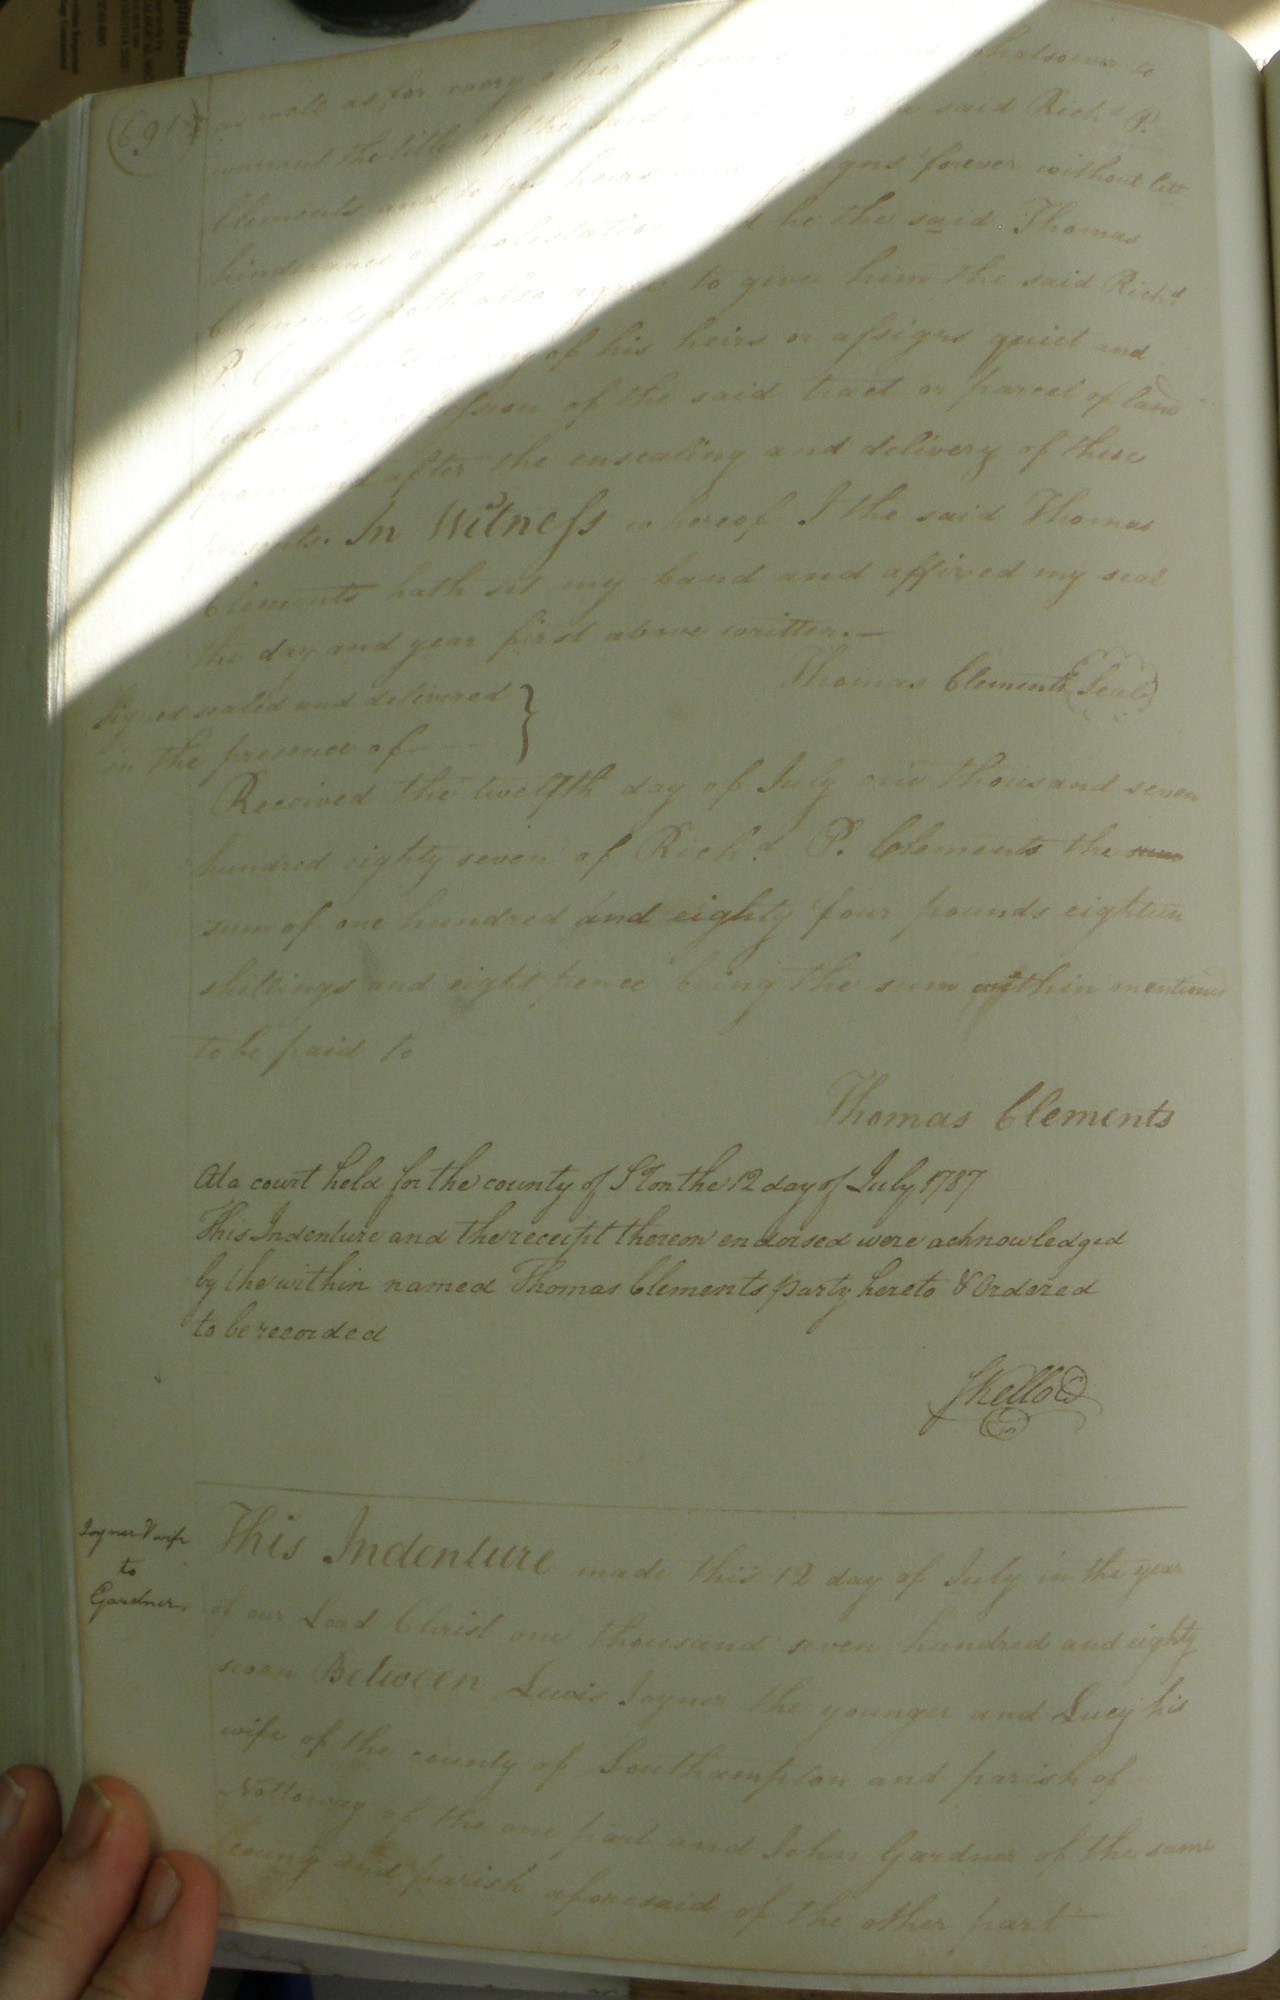 (691)
as well as for every other person whatsoever to
warrant the title of the said said Richd P.
Clements and to his heirs and assigns forever without lett
hinderance or molestation he the said Thomas
Clements doth also agree to give him the said Richd
P. Clements or any of his heirs or assigns quiet and
possession of the said tract or parcel of land
from and after the ensealing and delivery of these
presents. In Witness whereof I the said Thomas
Clements hath set my hand and affixed my seal
the day and year first above written.—
Thomas Clements Seal
Signed sealed and delivered }
in the presence of - - -
Received the twelfth day of July one thousand seven
hundred eighty seven of Richd. P. Clements the
sum of one hundred and eighty four pounds eighteen
shillings and eight pence being the sum within mentioned
to be paid to
Thomas Clements
At a court held for the county of S Ton the 12 day of July 1787
This Indenture and the receipt thereon endorsed were acknowledged
by the within named Thomas Clements party hereto & Ordered
to be recorded
Skello
Joyner & wife
to
Gardner.
This Indenture made this 12 day of July in the year
of our Lord Christ one thousand seven hundred and eighty
seven Between Lewis Joyner the younger and Lucy his
wife of the county of Southampton and parish of
Nottoway of the one part and John Gardner of the same
county and parish aforesaid of the other part